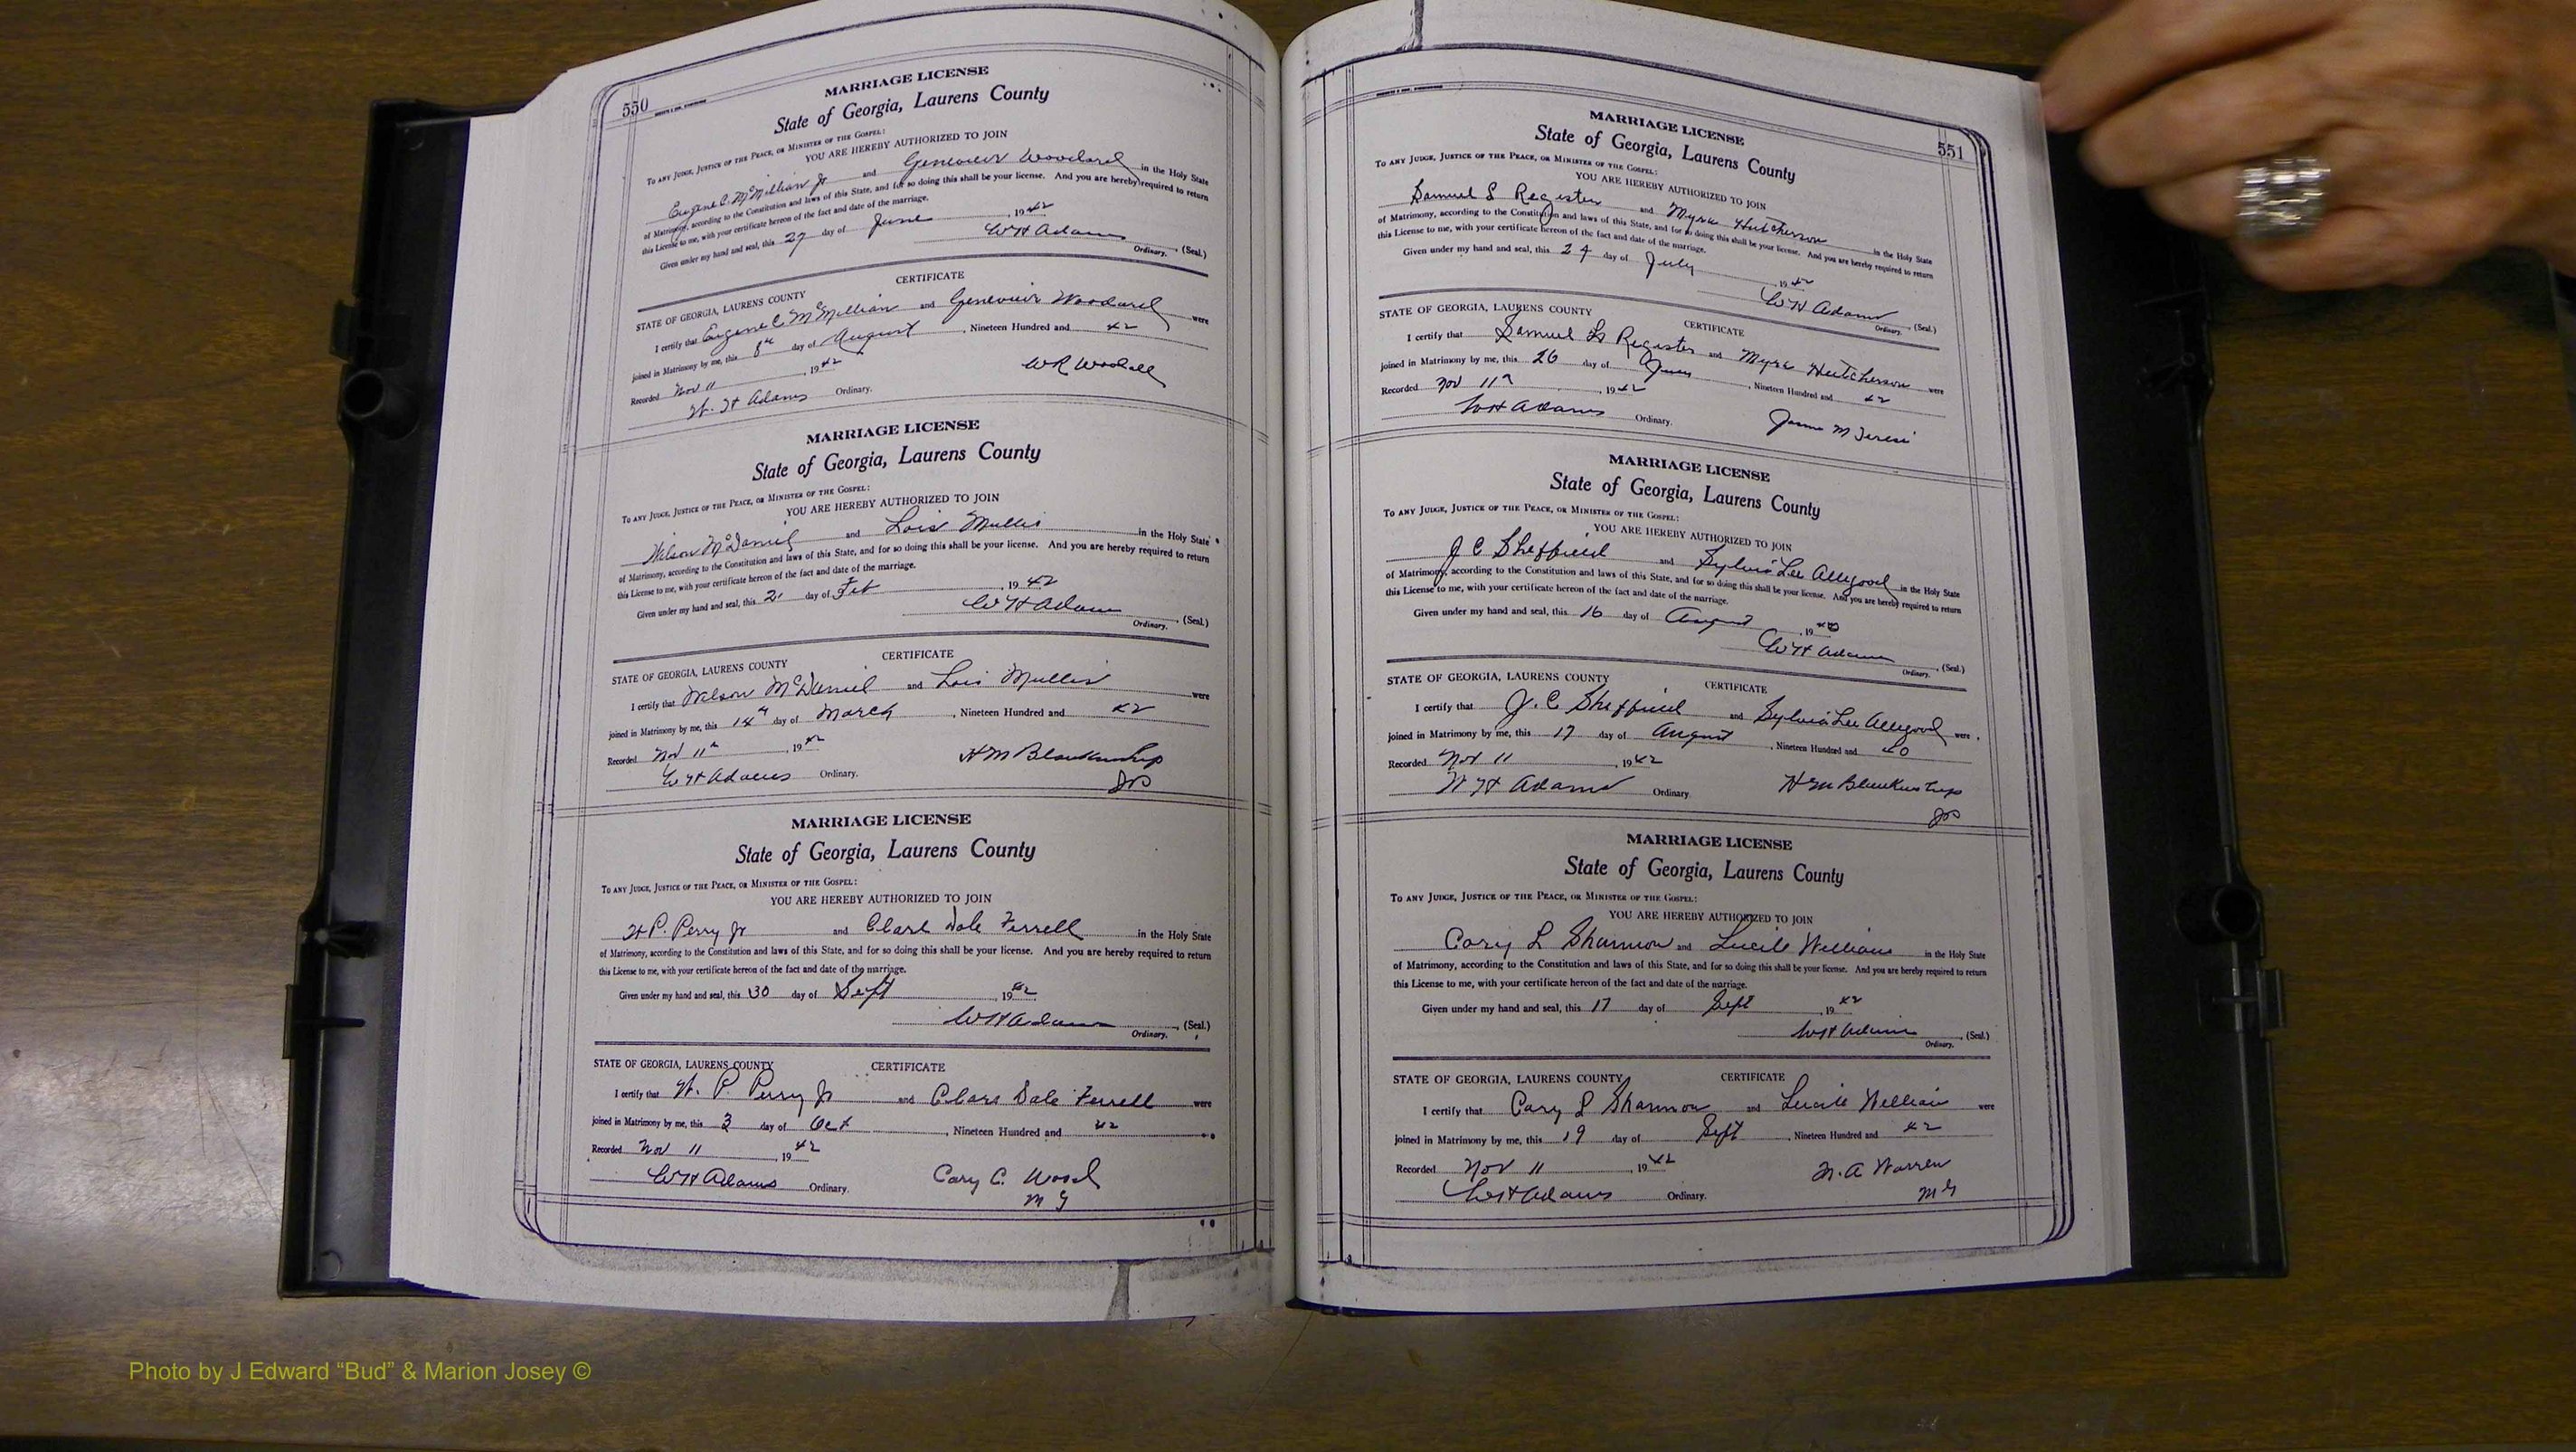 550
MARRIAGE LICENSE
State of Georgia, Laurens County
To ANY JUDGE, JUSTICE OF THE PEACE, OR MINISTER OF THE GOSPEL:
YOU ARE HEREBY AUTHORIZED TO JOIN
Eugene C. McMillian Jr and Genevieve Woodard in the Holy State
of Matrimony, according to the Constitution and laws of this State, and for so doing this shall be your license. And you are hereby required to return
this License to me, with your certificate hereon of the fact and date of the marriage.
Given under my hand and seal, this 27 day of June, 1942
WH Adams, (Seal.)
Ordinary.
CERTIFICATE
STATE OF GEORGIA, LAURENS COUNTY
I certify that Eugene C. McMillian and Genevieve Woodard were
joined in Matrimony by me, this 8th day of August, Nineteen Hundred and 42
Recorded Nov 11, 1942
W. H Adams Ordinary. WR Woodall
MARRIAGE LICENSE
State of Georgia, Laurens County
To ANY JUDGE, JUSTICE OF THE PEACE, OR MINISTER OF THE GOSPEL:
YOU ARE HEREBY AUTHORIZED TO JOIN
Wilson McDaniel and Lois Mullis in the Holy State
of Matrimony, according to the Constitution and laws of this State, and for so doing this shall be your license. And you are hereby required to return
this License to me, with your certificate hereon of the fact and date of the marriage.
Given under my hand and seal, this 2 day of Feb, 1942
WH Adams, (Seal.)
Ordinary.
CERTIFICATE
STATE OF GEORGIA, LAURENS COUNTY
I certify that Wilson McDaniel and Lois Mullis were
joined in Matrimony by me, this 14th day of March, Nineteen Hundred and 42
Recorded Nov 11th, 1942
WH Adams Ordinary. HM Blankenship
JP
MARRIAGE LICENSE
State of Georgia, Laurens County
To ANY JUDGE, JUSTICE OF THE PEACE, OR MINISTER OF THE GOSPEL:
YOU ARE HEREBY AUTHORIZED TO JOIN
P. Perry Jr and Clara Dale Ferrell in the Holy State
of Matrimony, according to the Constitution and laws of this State, and for so doing this shall be your license. And you are hereby required to return
this License to me, with your certificate hereon of the fact and date of the marriage.
Given under my hand and seal, this 30 day of Sept, 1942
WH Adams, (Seal.)
Ordinary.
STATE OF GEORGIA, LAURENS COUNTY CERTIFICATE
I certify that P. Perry Jr and Clara Dale Ferrell were
joined in Matrimony by me, this 3 day of Oct, Nineteen Hundred and 42
Recorded Nov 11, 1942
WH Adams Ordinary. Cary C. Wood
M G
551
MARRIAGE LICENSE
State of Georgia, Laurens County
To ANY JUDGE, JUSTICE OF THE PEACE, OR MINISTER OF THE GOSPEL:
YOU ARE HEREBY AUTHORIZED TO JOIN
Samuel S Register and Myra Hutcherson in the Holy State
of Matrimony, according to the Constitution and laws of this State, and for so doing this shall be your license. And you are hereby required to return
this License to me, with your certificate hereon of the fact and date of the marriage.
Given under my hand and seal, this 24 day of July, 1942
WH Adams, (Seal.)
Ordinary.
STATE OF GEORGIA, LAURENS COUNTY CERTIFICATE
I certify that Samuel Register and Myra Hutcherson were
joined in Matrimony by me, this 26 day of, Nineteen Hundred and 42
Recorded Nov 11, 1942
WH Adams Ordinary.
MARRIAGE LICENSE
State of Georgia, Laurens County
To ANY JUDGE, JUSTICE OF THE PEACE, OR MINISTER OF THE GOSPEL:
YOU ARE HEREBY AUTHORIZED TO JOIN
J C Sheffield and Sylvia Lee Allgood in the Holy State
of Matrimony, according to the Constitution and laws of this State, and for so doing this shall be your license. And you are hereby required to return
this License to me, with your certificate hereon of the fact and date of the marriage.
Given under my hand and seal, this 16 day of August, 1940
WH Adams, (Seal.)
Ordinary.
STATE OF GEORGIA, LAURENS COUNTY CERTIFICATE
I certify that J. C Sheffield and Sylvia Lee Allgood were
joined in Matrimony by me, this 17 day of August, Nineteen Hundred and 40
Recorded Nov 11, 1942
W H Adams Ordinary. HM Blankenship
JP
MARRIAGE LICENSE
State of Georgia, Laurens County
To ANY JUDGE, JUSTICE OF THE PEACE, OR MINISTER OF THE GOSPEL:
YOU ARE HEREBY AUTHORIZED TO JOIN
Cary L Shannon and Lucile Williams in the Holy State
of Matrimony, according to the Constitution and laws of this State, and for so doing this shall be your license. And you are hereby required to return
this License to me, with your certificate hereon of the fact and date of the marriage.
Given under my hand and seal, this 17 day of Sept, 1942
WH Adams, (Seal.)
Ordinary.
STATE OF GEORGIA, LAURENS COUNTY CERTIFICATE
I certify that Cary L Shannon and Lucile William were
joined in Matrimony by me, this 19 day of Sept, Nineteen Hundred and 42
Recorded Nov 11, 1942
WH Adams Ordinary. A Warren
M G
Photo by J Edward “Bud” & Marion Josey ©